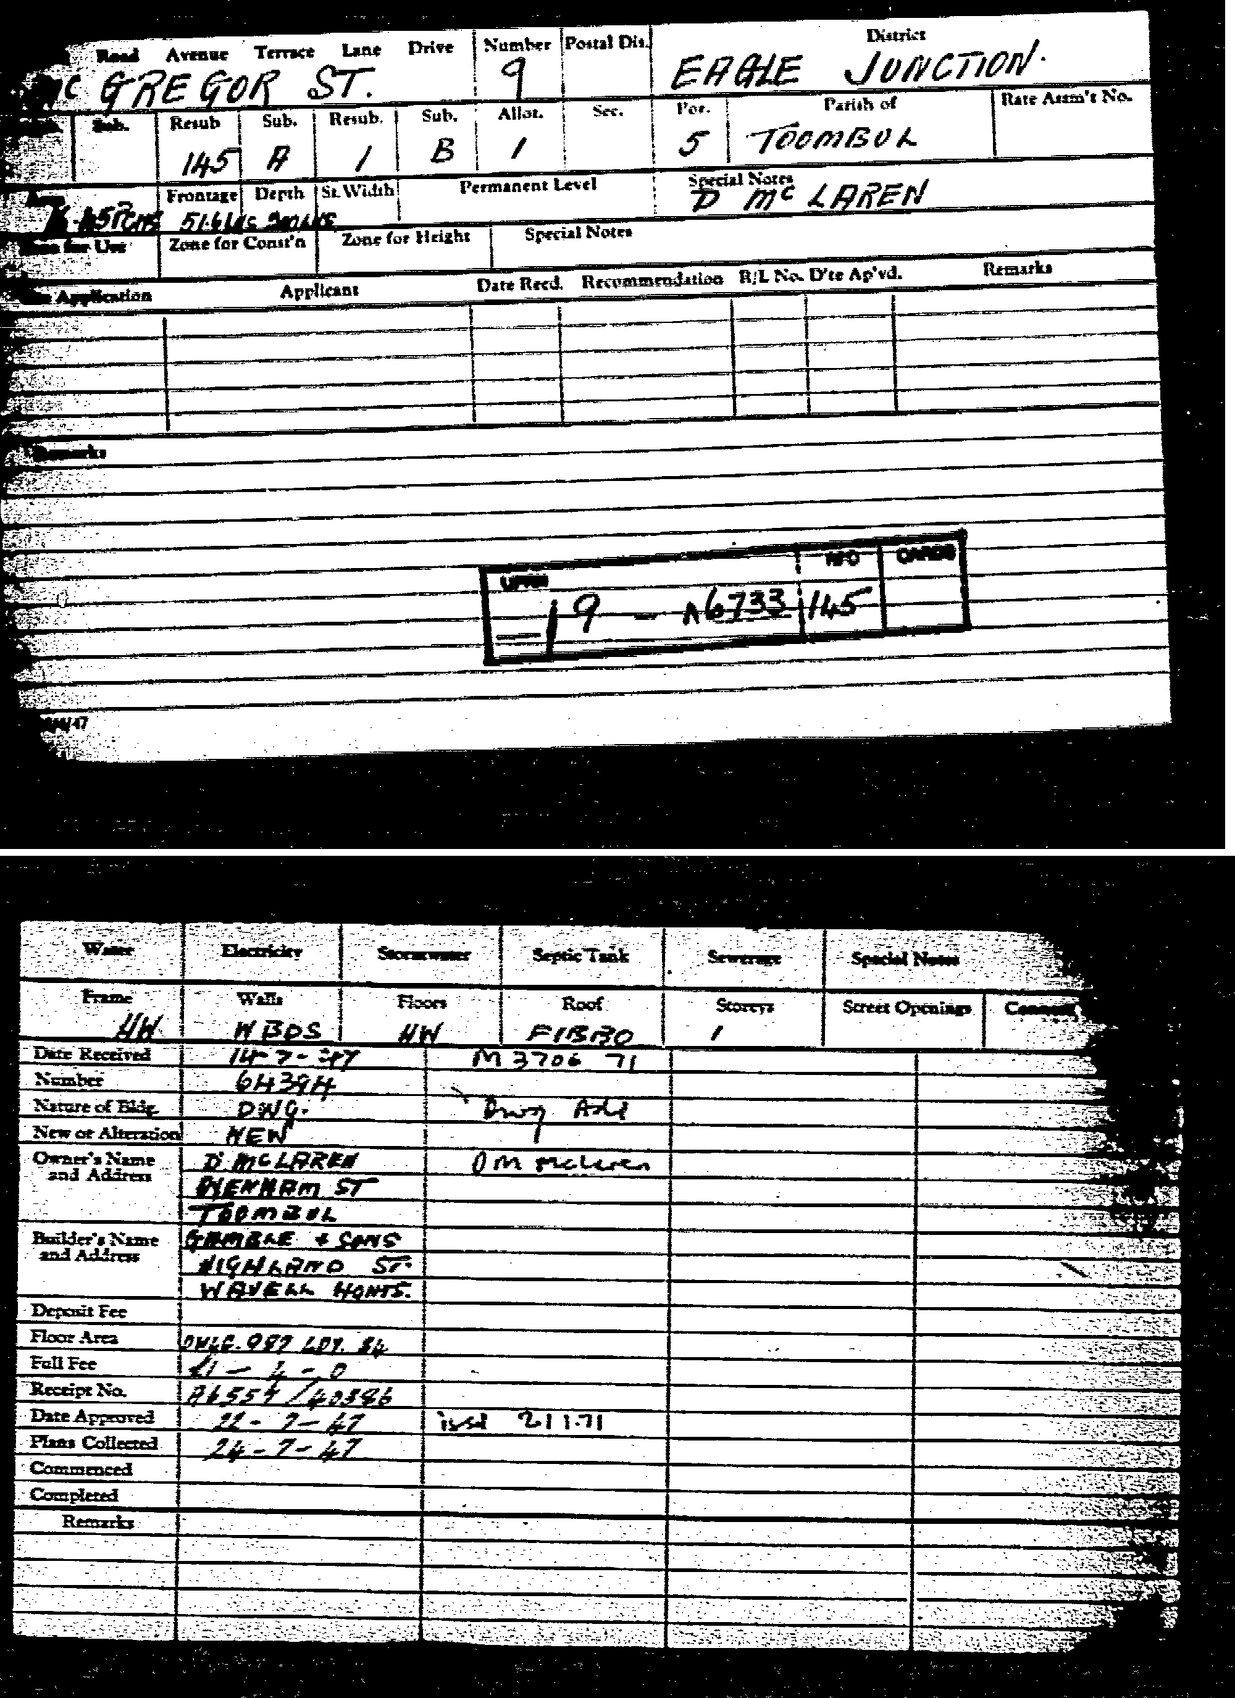 Road Avenue Terrace Lane Drive Number Postal Dis. District
Mc GREGOR ST. 9 EAGLE JUNCTION.
Sub. Resub Sub. Resub. Sub. Allot. Sec. Por. Parish of Rate Assm't No.
145 A 1 B 1 5 TOOMBUL
Area Frontage Depth St. Width Permanent Level Special Notes
D McLAREN
Zone for Use Zone for Const'n Zone for Height Special Notes
Application Applicant Date Recd. Recommendation R/L No. D'te Ap'vd. Remarks
Remarks
UPRN RPD CARDS
19 - 6733 145
/47
Water Electricity Stormwater Septic Tank Sewerage Special Notes
Frame Walls Floors Roof Storeys Street Openings
HW WBDS HW FIBRO 1
Date Received 14-7-47 M 3706 71
Number 64394
Nature of Bldg. DWG. Dwg Add
New or Alteration NEW
Owner's Name D McLAREN D M McLaren
and Address ST
TOOMBUL
Builder's Name GAMBLE + SONS
and Address HIGHLAND ST.
WAVELL HGHTS.
Deposit Fee
Floor Area DWLG. 987 LDY. 84
Full Fee £1 - 4 - 0
Receipt No. /40386
Date Approved 22-7-47 issd 2.11.71
Plans Collected 24-7-47
Commenced
Completed
Remarks